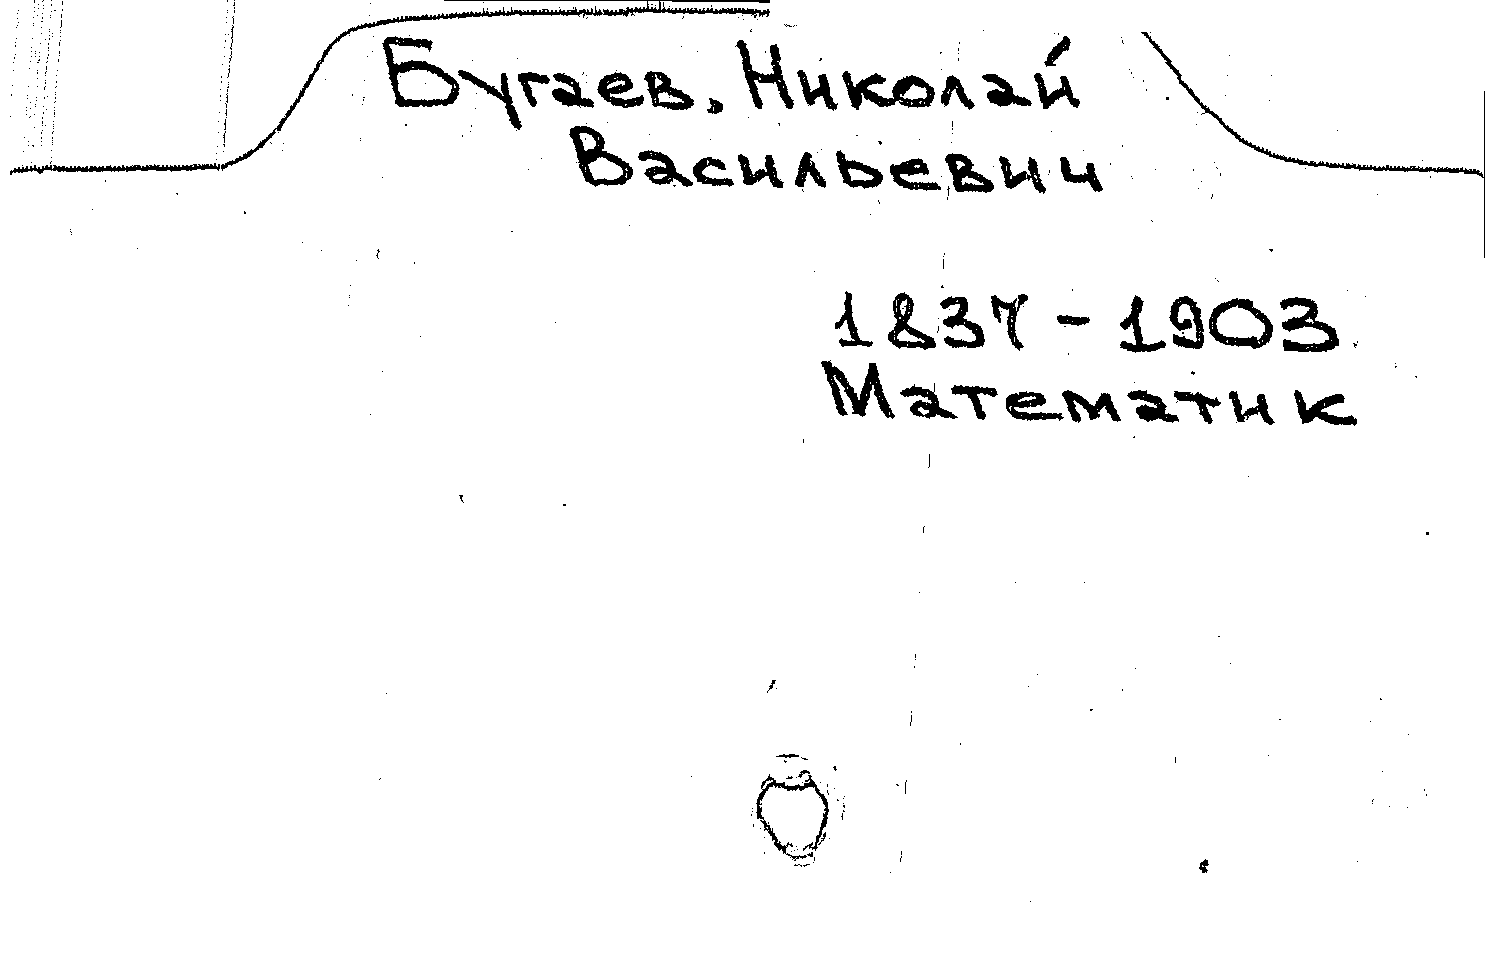 Бугаев, Николай
Васильевич
1837-1903
Математик